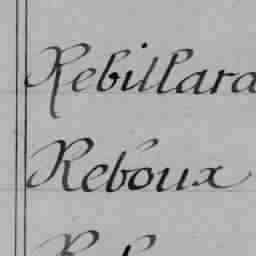 Rebillard
Reboux